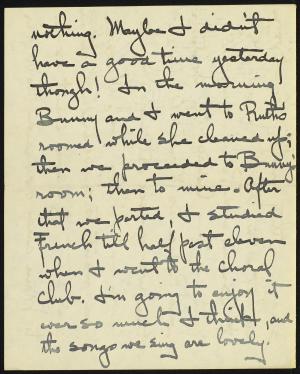 nothing. Maybe I didn't
have a good time yesterday
though! In the morning
Bunny and I went to Ruth's
roomed while she cleaned up;
then we proceeded to Bunny
room; then to mine. After
that we parted, I studied
French till half past eleven
when I went to the Choral
Club. I'm going to enjoy it
ever so much I think, and
the songs we sing are lovely.